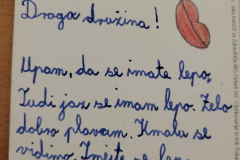 Draga družina!
Upam, da se imate lepo.
Tudi jaz se imam lepo. Zelo
dobro plavam. Kmalu se
vidimo. Imejte se lepo